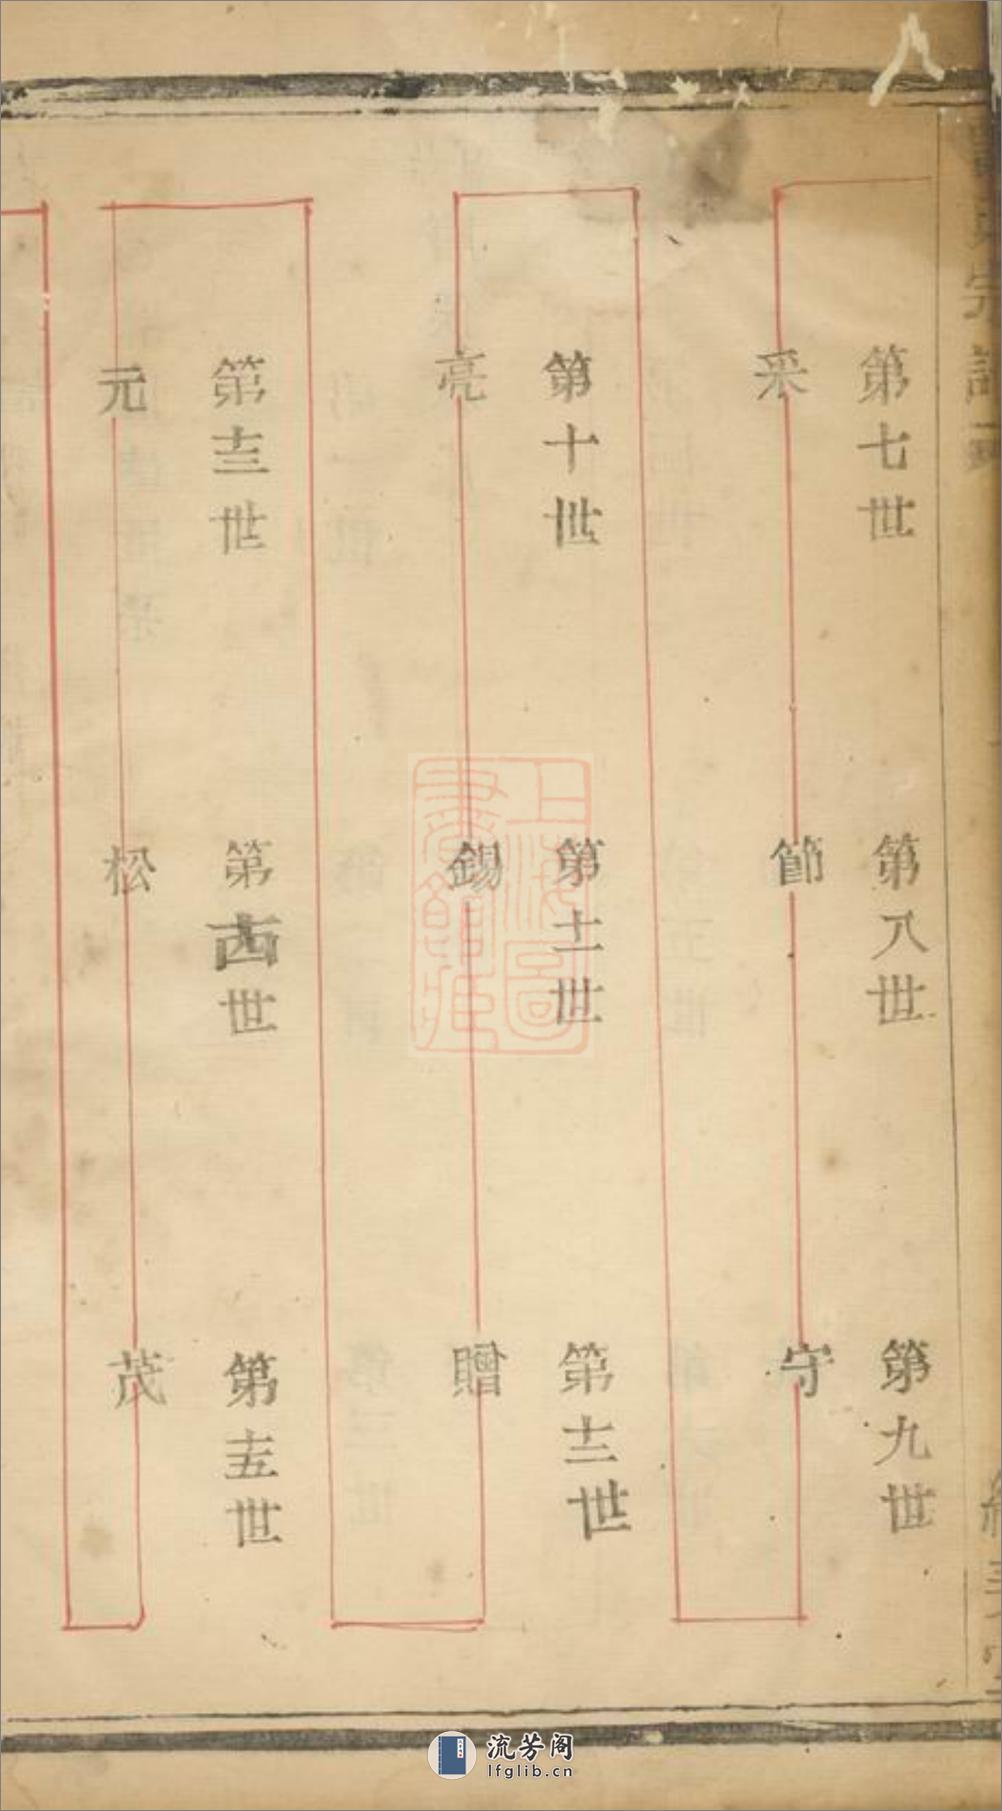 第七世
采
第八世
節
第九世
守
第十世
亮
第十一世
錫
第十二世
贈
第十三世
元
第十四世
松
第十五世
茂
上海圖書館藏
流芳阁
lfglib.cn